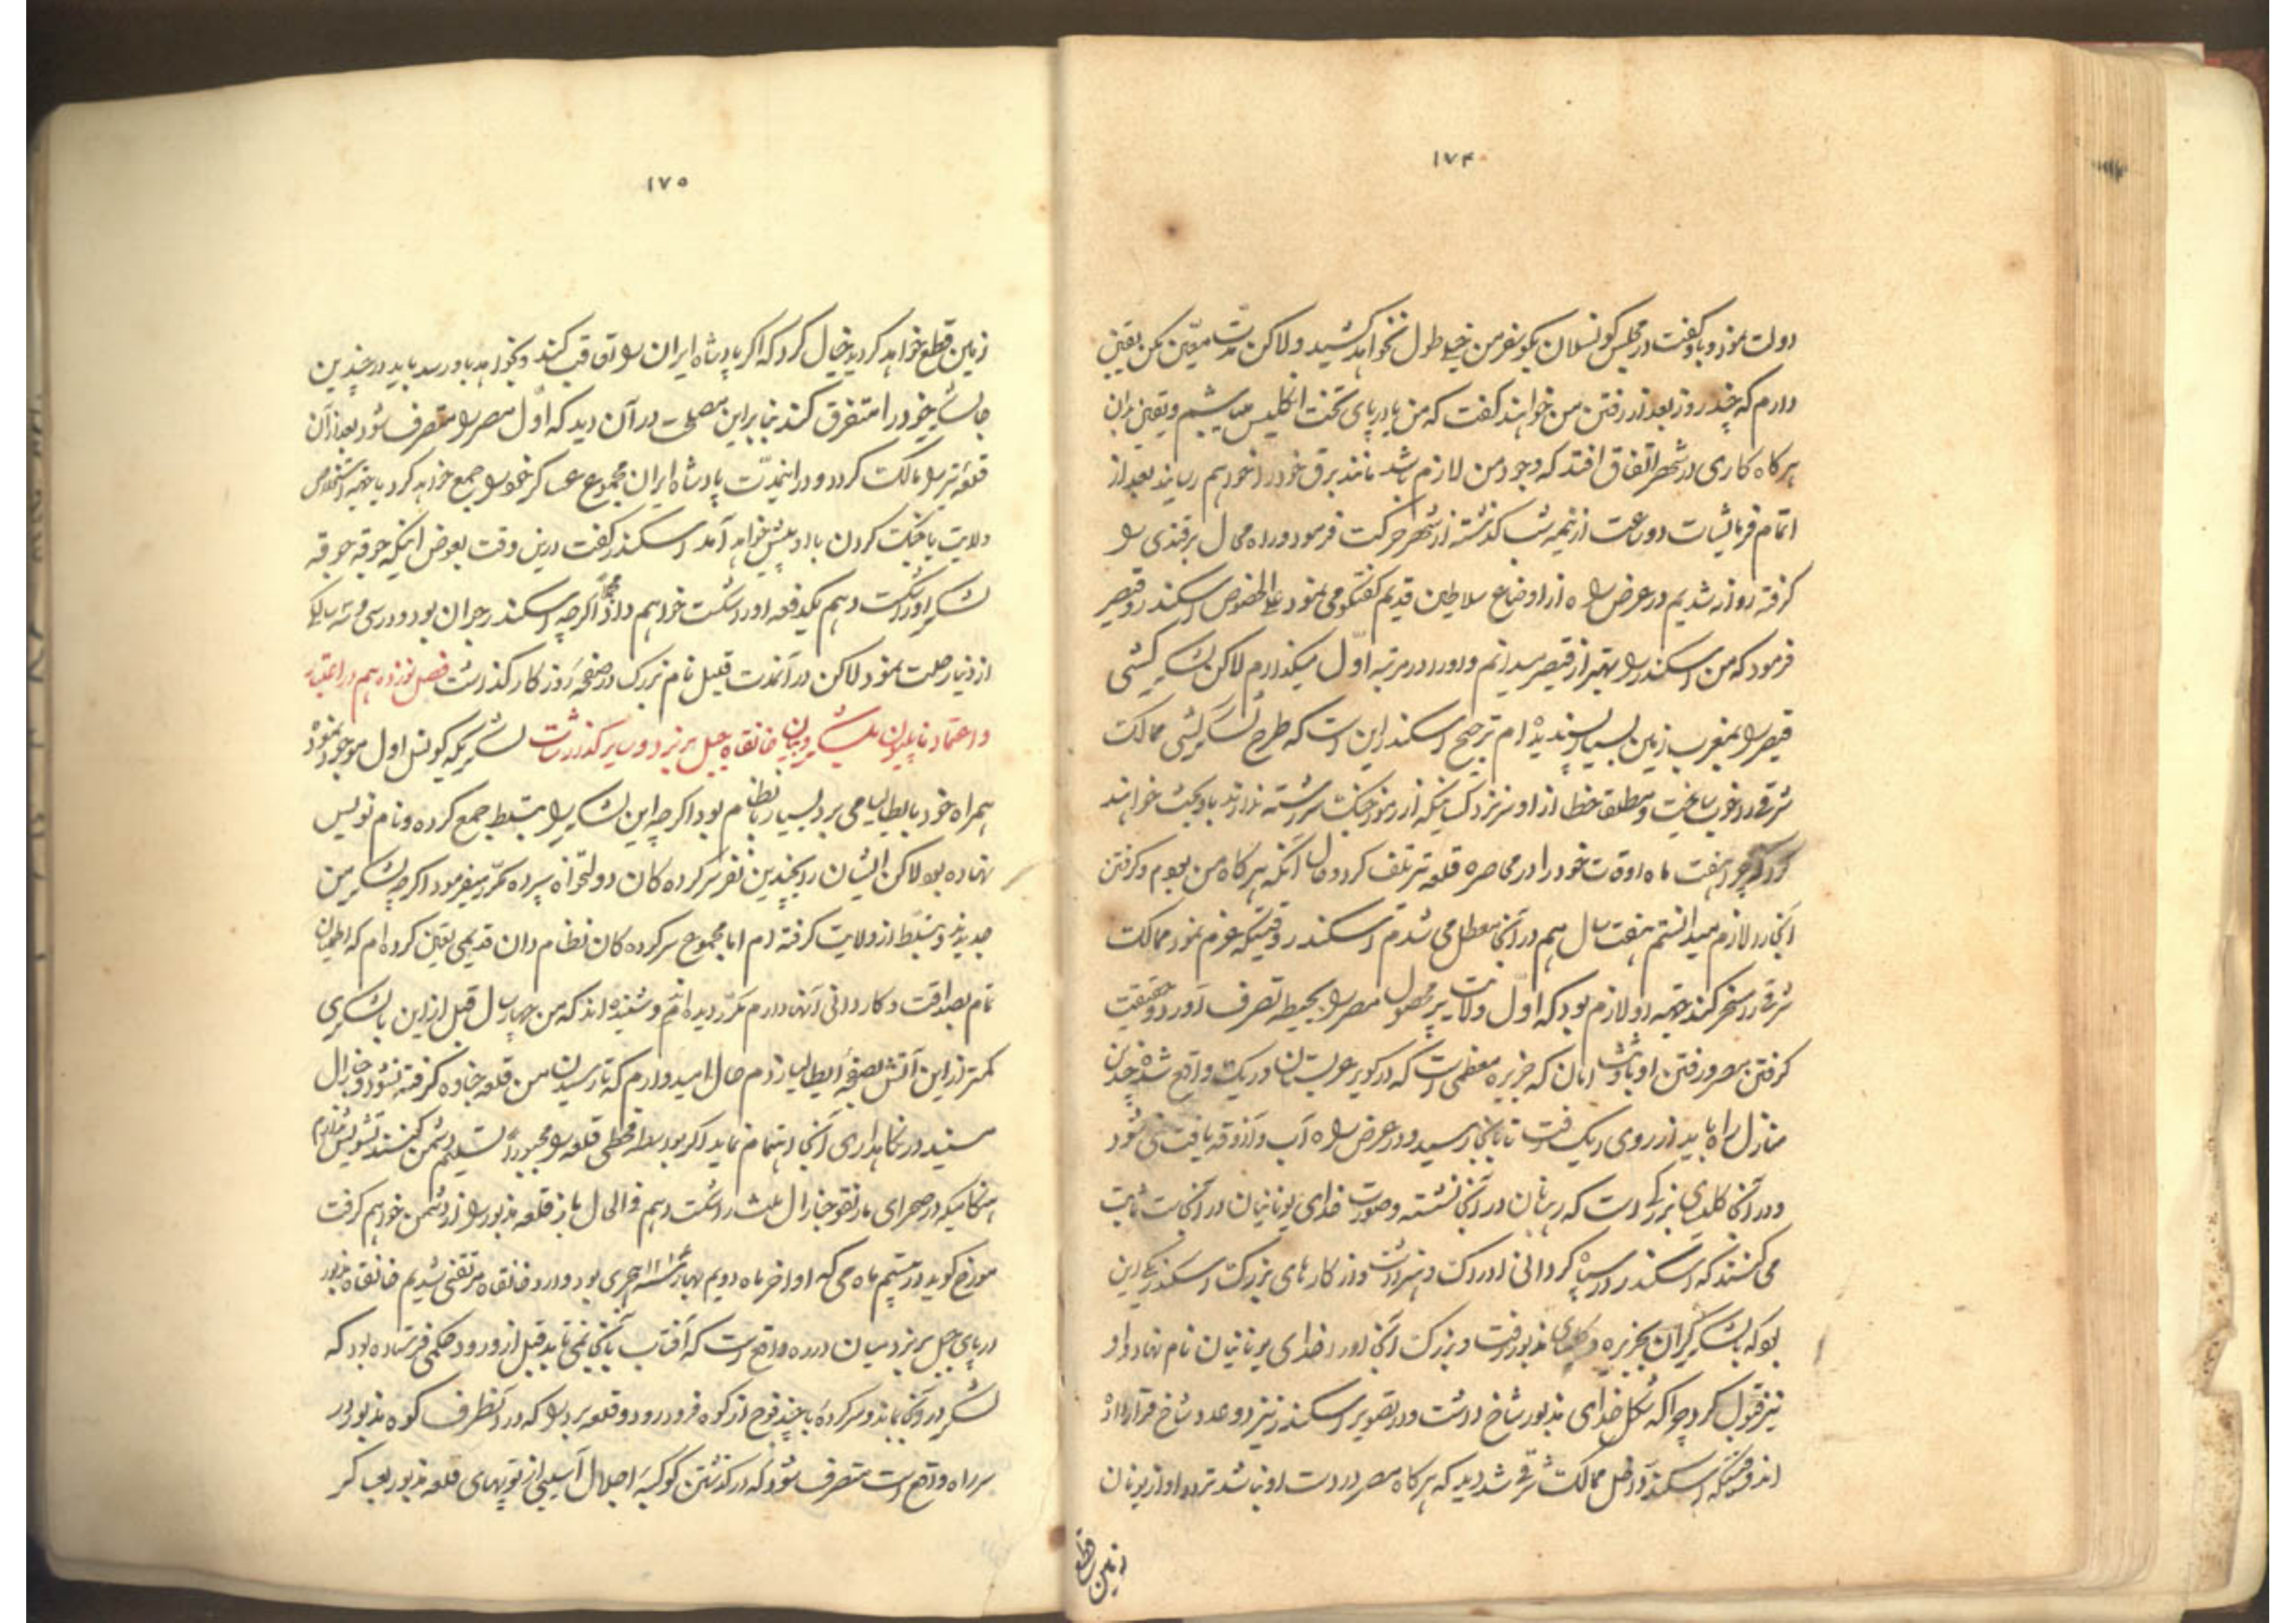 ۱۷۴
دولت نمود و باو گفت در مجلس کونسلان بگو سفر من خیلی طول نخواهد کشید ولاکن مدت معیّن مکن یقین
دارم که چند روز بعد از رفتن من خواهند گفت که من یا در پای تخت انگلیس میباشیم و یقین بدان
هر کاه کاری در شهر اتفاق افتد که وجود من لازم باشد مانند برق خود را خواهم رسانید بعد از
اتمام فرمایشات دو ساعت از نیمه شب گذشته از شهر حرکت فرمود و راه محال برقندی را
گرفته روانه شدیم در عرض راه از اوضاع سلاطین قدیم گفتگو می نمود علی الخصوص اسکندر و قیصر
فرمود که من اسکندر را بهتر از قیصر میدانم و او را در مرتبه اوّل میگذارم لاکن لشکر کشی
قیصر را بمغرب زمین بسیار پسندیده ام ترجیح اسکندر این است که طرح لشکر کشی ممالک
شرقی را خوب ساخت و مطلقا خطا از او سر نزد کسانیکه از رموز جنگ سررشته ندارند باو بحث خواهند
کرد که چرا هفت ماه اوقات خود را در محاصره قلعه تر تلف کرد و حال آنکه هر کاه من بودم و گرفتن
آنجا را لازم میدانستم هفت سال هم در آنجا معطل می شدم اسکندر وقتیکه عزم نمود ممالک
شرقی را مسخر کند جهته او لازم بود که اوّل ولایت پر محصول مصر را بحیطه تصرف آورد و حقیقت
گرفتن مصر و رفتن او با امان که جزیره معظمی است که در کویر عربستان در ریک واقع شده چندین
منازل راه باید از روی ریک رفت تا بانجا رسید و در عرض راه آب و آذوقه یافت نمی شود
و در آنجا کلیسای بزرگی است که رهبانان در آنجا نشسته و صورت خدای یونانیان در آنجاست ثابت
می کنند که اسکندر در سپاه گردانی ادراک و هنر داشت و از کارهای بزرگ اسکندر یکی این
بود که با لشکر گران بجزیره و کلیسای مذبور رفت و بزرگ آنجا او را خدای یونانیان نام نهاد و او
نیز قبول کرد چرا که شکل خدای مذبور شاخ داشت و در تصویر اسکندر نیز دو عدد شاخ قرار داده
اند وقتیکه اسکندر داخل ممالک شرقی شد دید که هر کاه مصر در دست او نباشد تردد او از یونان
زمین قطع
۱۷۵
زمین قطع خواهد کردید خیال کرد که اکر پادشاه ایران را تعاقب کند و بخواهد باو رسد باید در چندین
جا لشکر خود را متفرق کند بنا براین مصلحت در آن دید که اوّل مصر را متصرف شود بعد از آن
قلعه تر را مالک کردد و در اینمدّت پادشاه ایران مجموع عساکر خود را جمع خواهد کرد یا جهته استخلاص
ولایت یا جنگ کردن با او پیش خواهد آمد اسکندر گفت درین وقت بعوض اینکه جوقه جوقه
لشکر او را شکست دهم یکدفعه او را شکست خواهم داد اکرچه اسکندر جوان بود و در سی و سه سالکی
از دنیا رحلت نمود لاکن در آنمدت قلیل نام بزرگ در صفحه روزکار گذاشت فصل نوزدهم در اعتبار
و اعتماد ناپلیون بلشکریان خانقاه جبل برنرد و سایر گذارشات لشکریکه کونسل اول موجود نموده
همراه خود بایطالیا می برد بسیار با نظام بود اکرچه این لشکر را بتسلط جمع کرده و نام نویس
نهاده بود لاکن ایشان را بچندین نفر سرکرده کان دولتخواه سپرده مکرّر میفرمود اکرچه لشکر من
جدیدند و بتسلّط از ولایت گرفته ام اما مجموع سرکرده کان نظام دان قدیمی تعین کرده ام که اطمینان
تمام بصداقت و کاردانی آنها دارم مکرّر دیده اند و شنیده اند که من چهار سال قبل از این با لشکری
کمتر از این آتش بصفحه ایطالیا زدم حال امیدوارم که تا رسیدن من قلعه جناوه گرفته نشود و جنرال
مسینه در نگاهداری آنجا اهتمام نماید اکر بواسطه قحطی قلعه را مجبوراً تسلیم دشمن کنند تشویش ندارم
هنگامیکه در صحرای مارنقو جنارال ملاس را شکست دهم فی الحال باز قلعه مذبور را از دشمن خواهم گرفت
مورخ کوید در بیستم ماه می که اواخر ماه دویم بهار هجری بود وارد خانقاه مرتقنی شدیم خانقاه مذبور
در پای جبل برنرد میان دره واقع است که آفتاب بآنجا نمی تابد قبل از ورود حکمی فرستاده بود که
لشکر در آنجا بماند و سرکرده با چند فوج از کوه فرود رود و قلعه برد را که در آنطرف کوه مذبور در
سر راه واقع است متصرف شود که در گذشتن کوکبه اجلال آسیبی از توپهای قلعه مذبور بعساکر